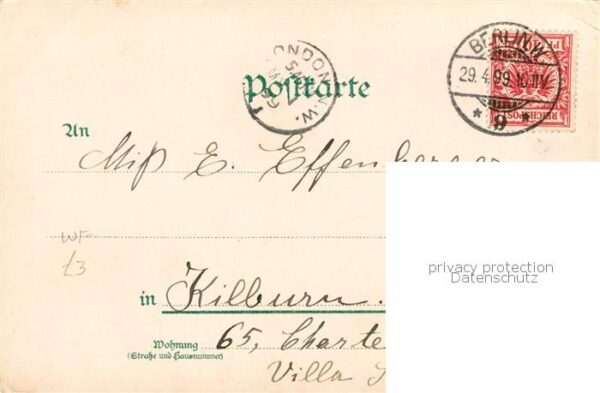 BERLIN.W.
29.4.99.10-11V.
* 9 *
REICHSPOST
LONDON.N.W.
Postkarte
An
Miss E. Effenberger
privacy protection
Datenschutz
£3
in Kilburn.
Wohnung
(Straße und Hausnummer)
65, Charte
Villa